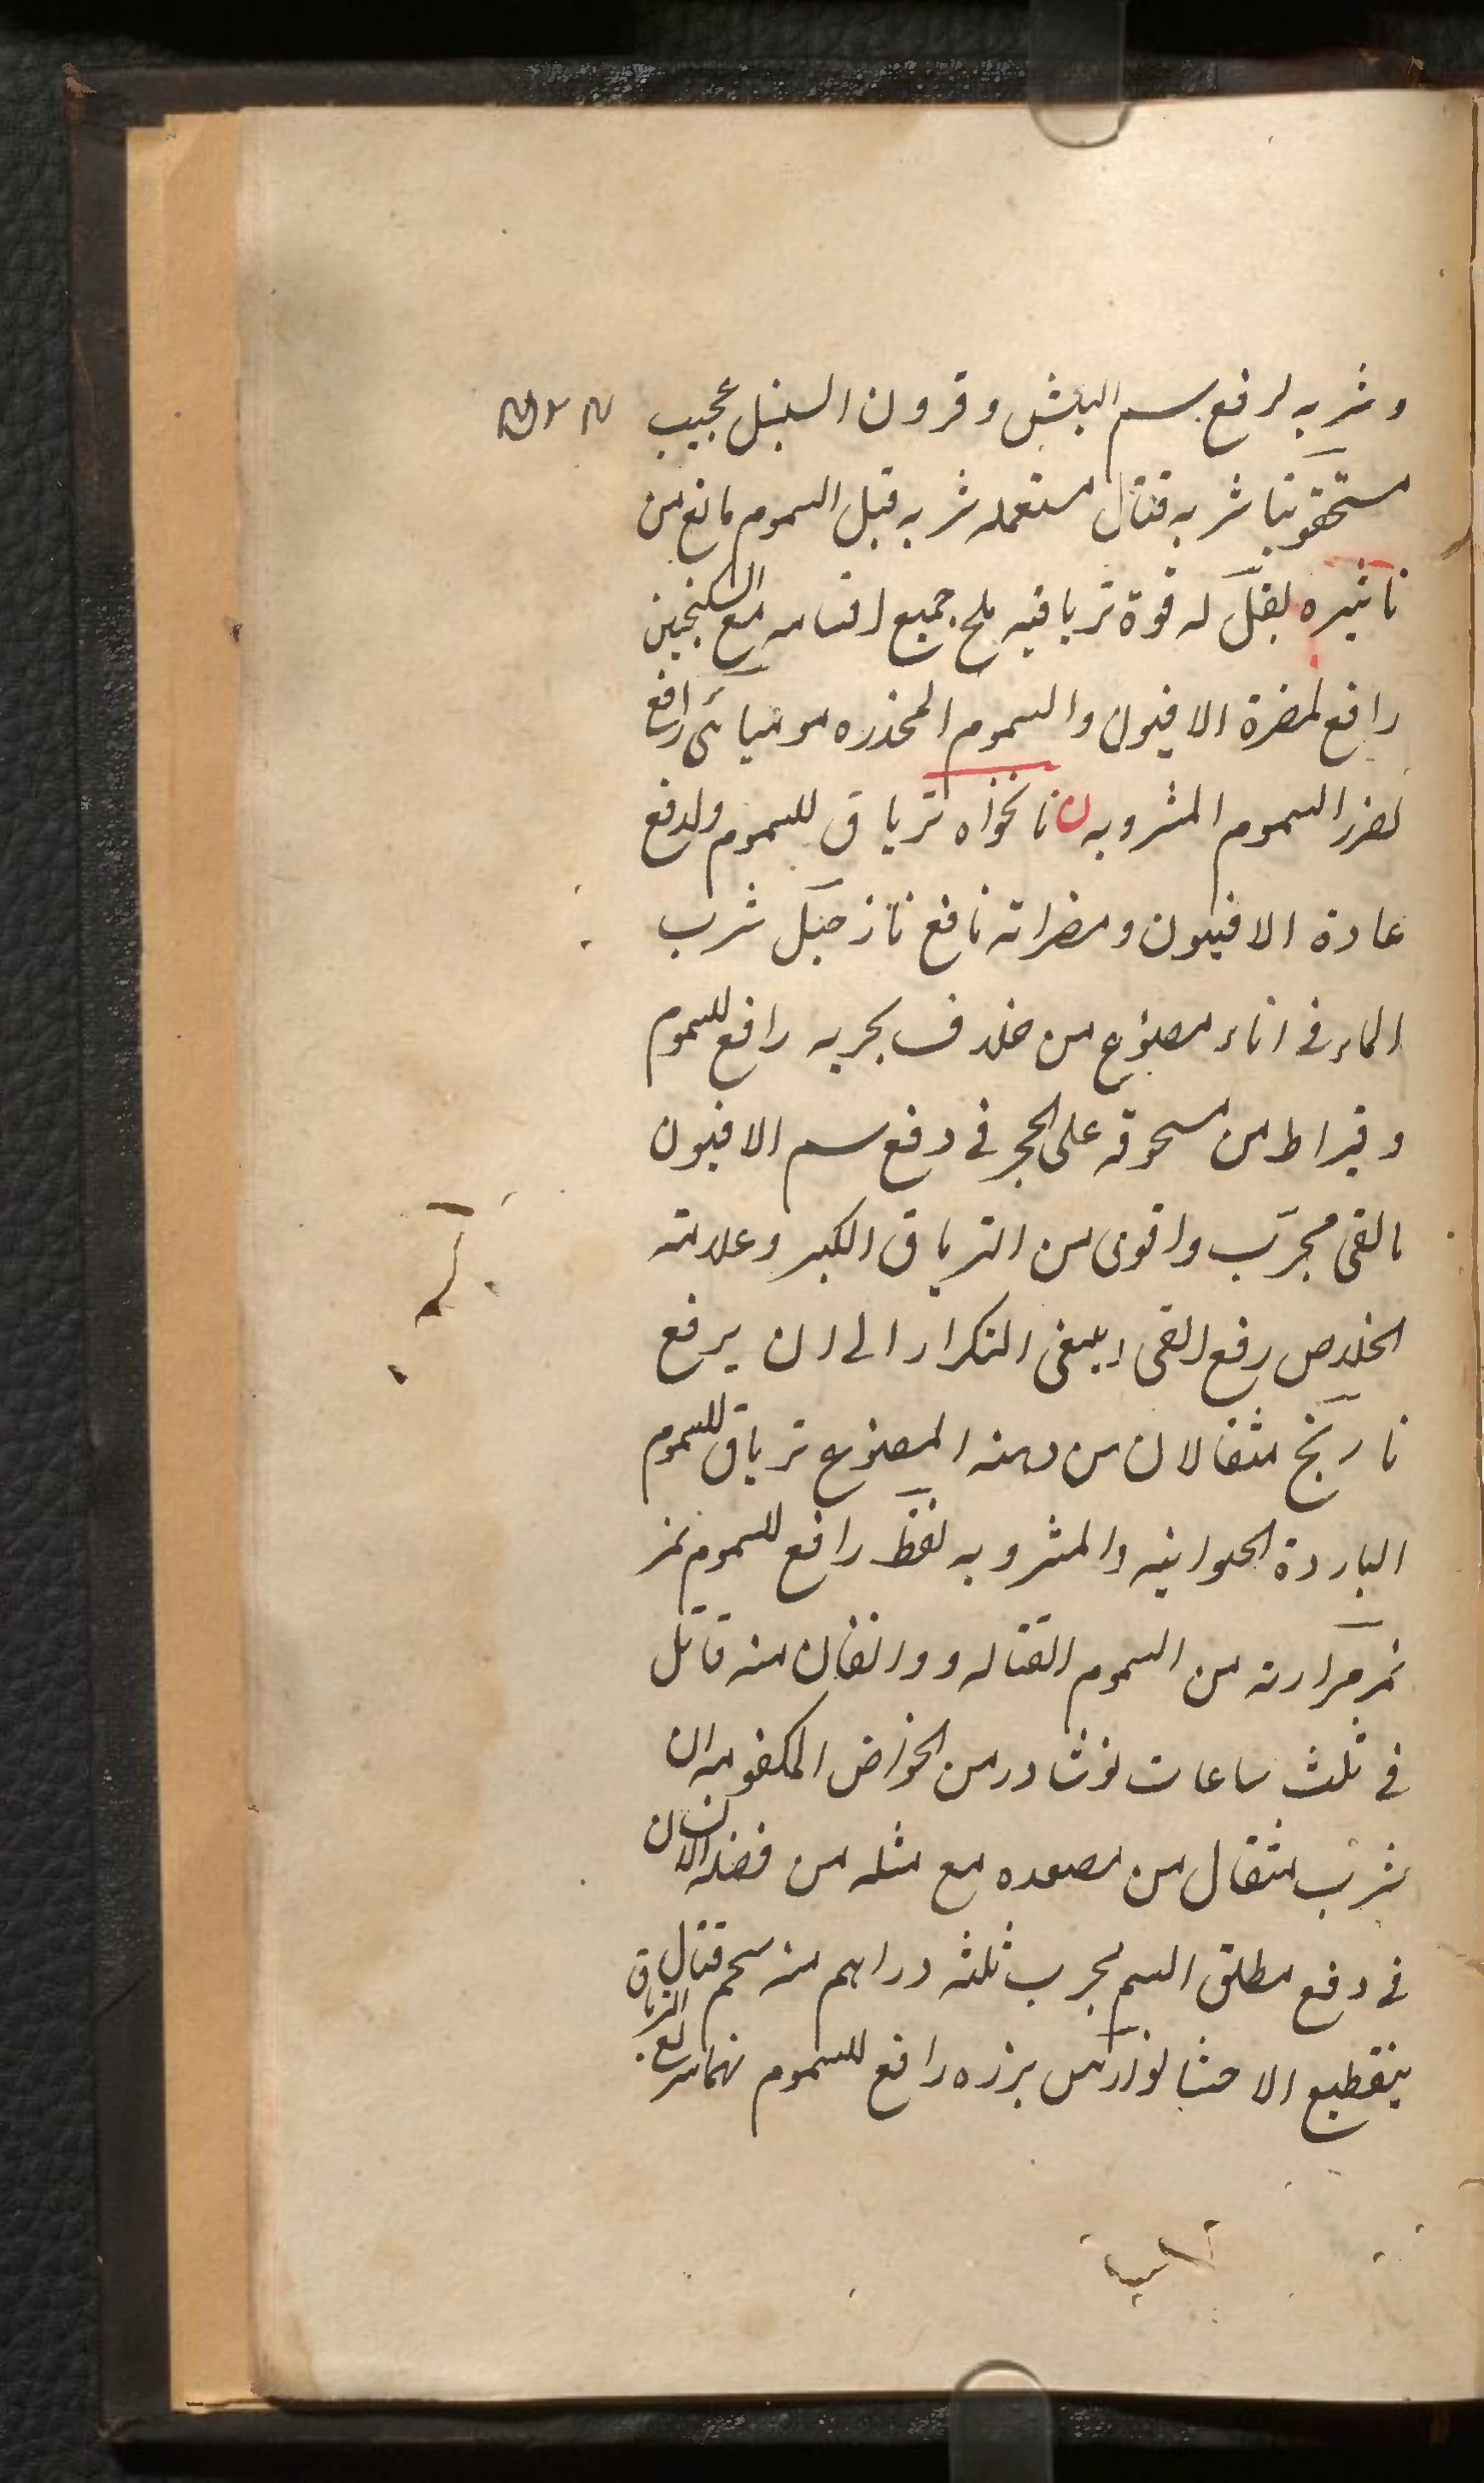 و شربه لرفع سم البيش و قرون السنبل عجيب
شربه قتال مستعمله شربه قبل السموم مانع من
تاثيره له قوة ترياقيه ملح جميع اقسامه مع السكنجبين
رافع لمضرة الافيون والسموم المخدره موميائى رافع
لضرر السموم المشروبه ن نانخواه ترياق للسموم ولدفع
عادة الافيون و مضراته نافع نارجيل شرب
الماء فى اناء مصنوع من غلاف بحريه رافع للسموم
و قيراط من مسحوقه على الحجر فى دفع سم الافيون
بالقى مجرب واقوى من الترياق الكبير وعلامته
الخلاص رفع القى ينبغى التكرار الى ان يرفع
نارنج مثقالان من دهنه المصنوع ترياق للسموم
الباردة الحيوانيه والمشروبه نفط رافع للسموم نمر
نمر مرارته من السموم القتاله و دانقان منه قاتل
فى ثلث ساعات نوشادر من الخواص المكتومه ان
شرب مثقال من مصعده مع مثله من فضلة الانسان
فى دفع مطلق السم مجرب ثلثه دراهم منه سم قتال
بتقطيع الاحشا بزره رافع للسموم